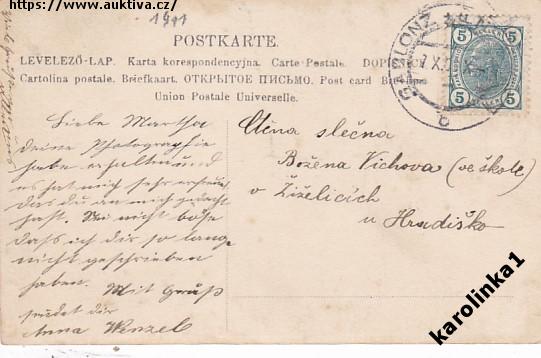 https://www.auktiva.cz/
1911
POSTKARTE.
LEVELEZŐ-LAP. Karta korespondencyjna. Carte Postale.
Cartolina postale. Briefkaart. ОТКРЫТОЕ ПИСЬМО. Post card
Union Postale Universelle.
GABLONZ
5 5
5 5
Liebe Martha
deine Photographie
habe erhalten und
es hat mich sehr erfreut
das du an mich gedacht
hast. Sei nicht böse
dass ich dir so lange
nicht geschrieben
haben. Mit Gruß
sendet dir
Anna Wenzel
Ctěná slečna
Božena Vichova (ve škole)
v Žiželicích
u Hradiško
karolinka1